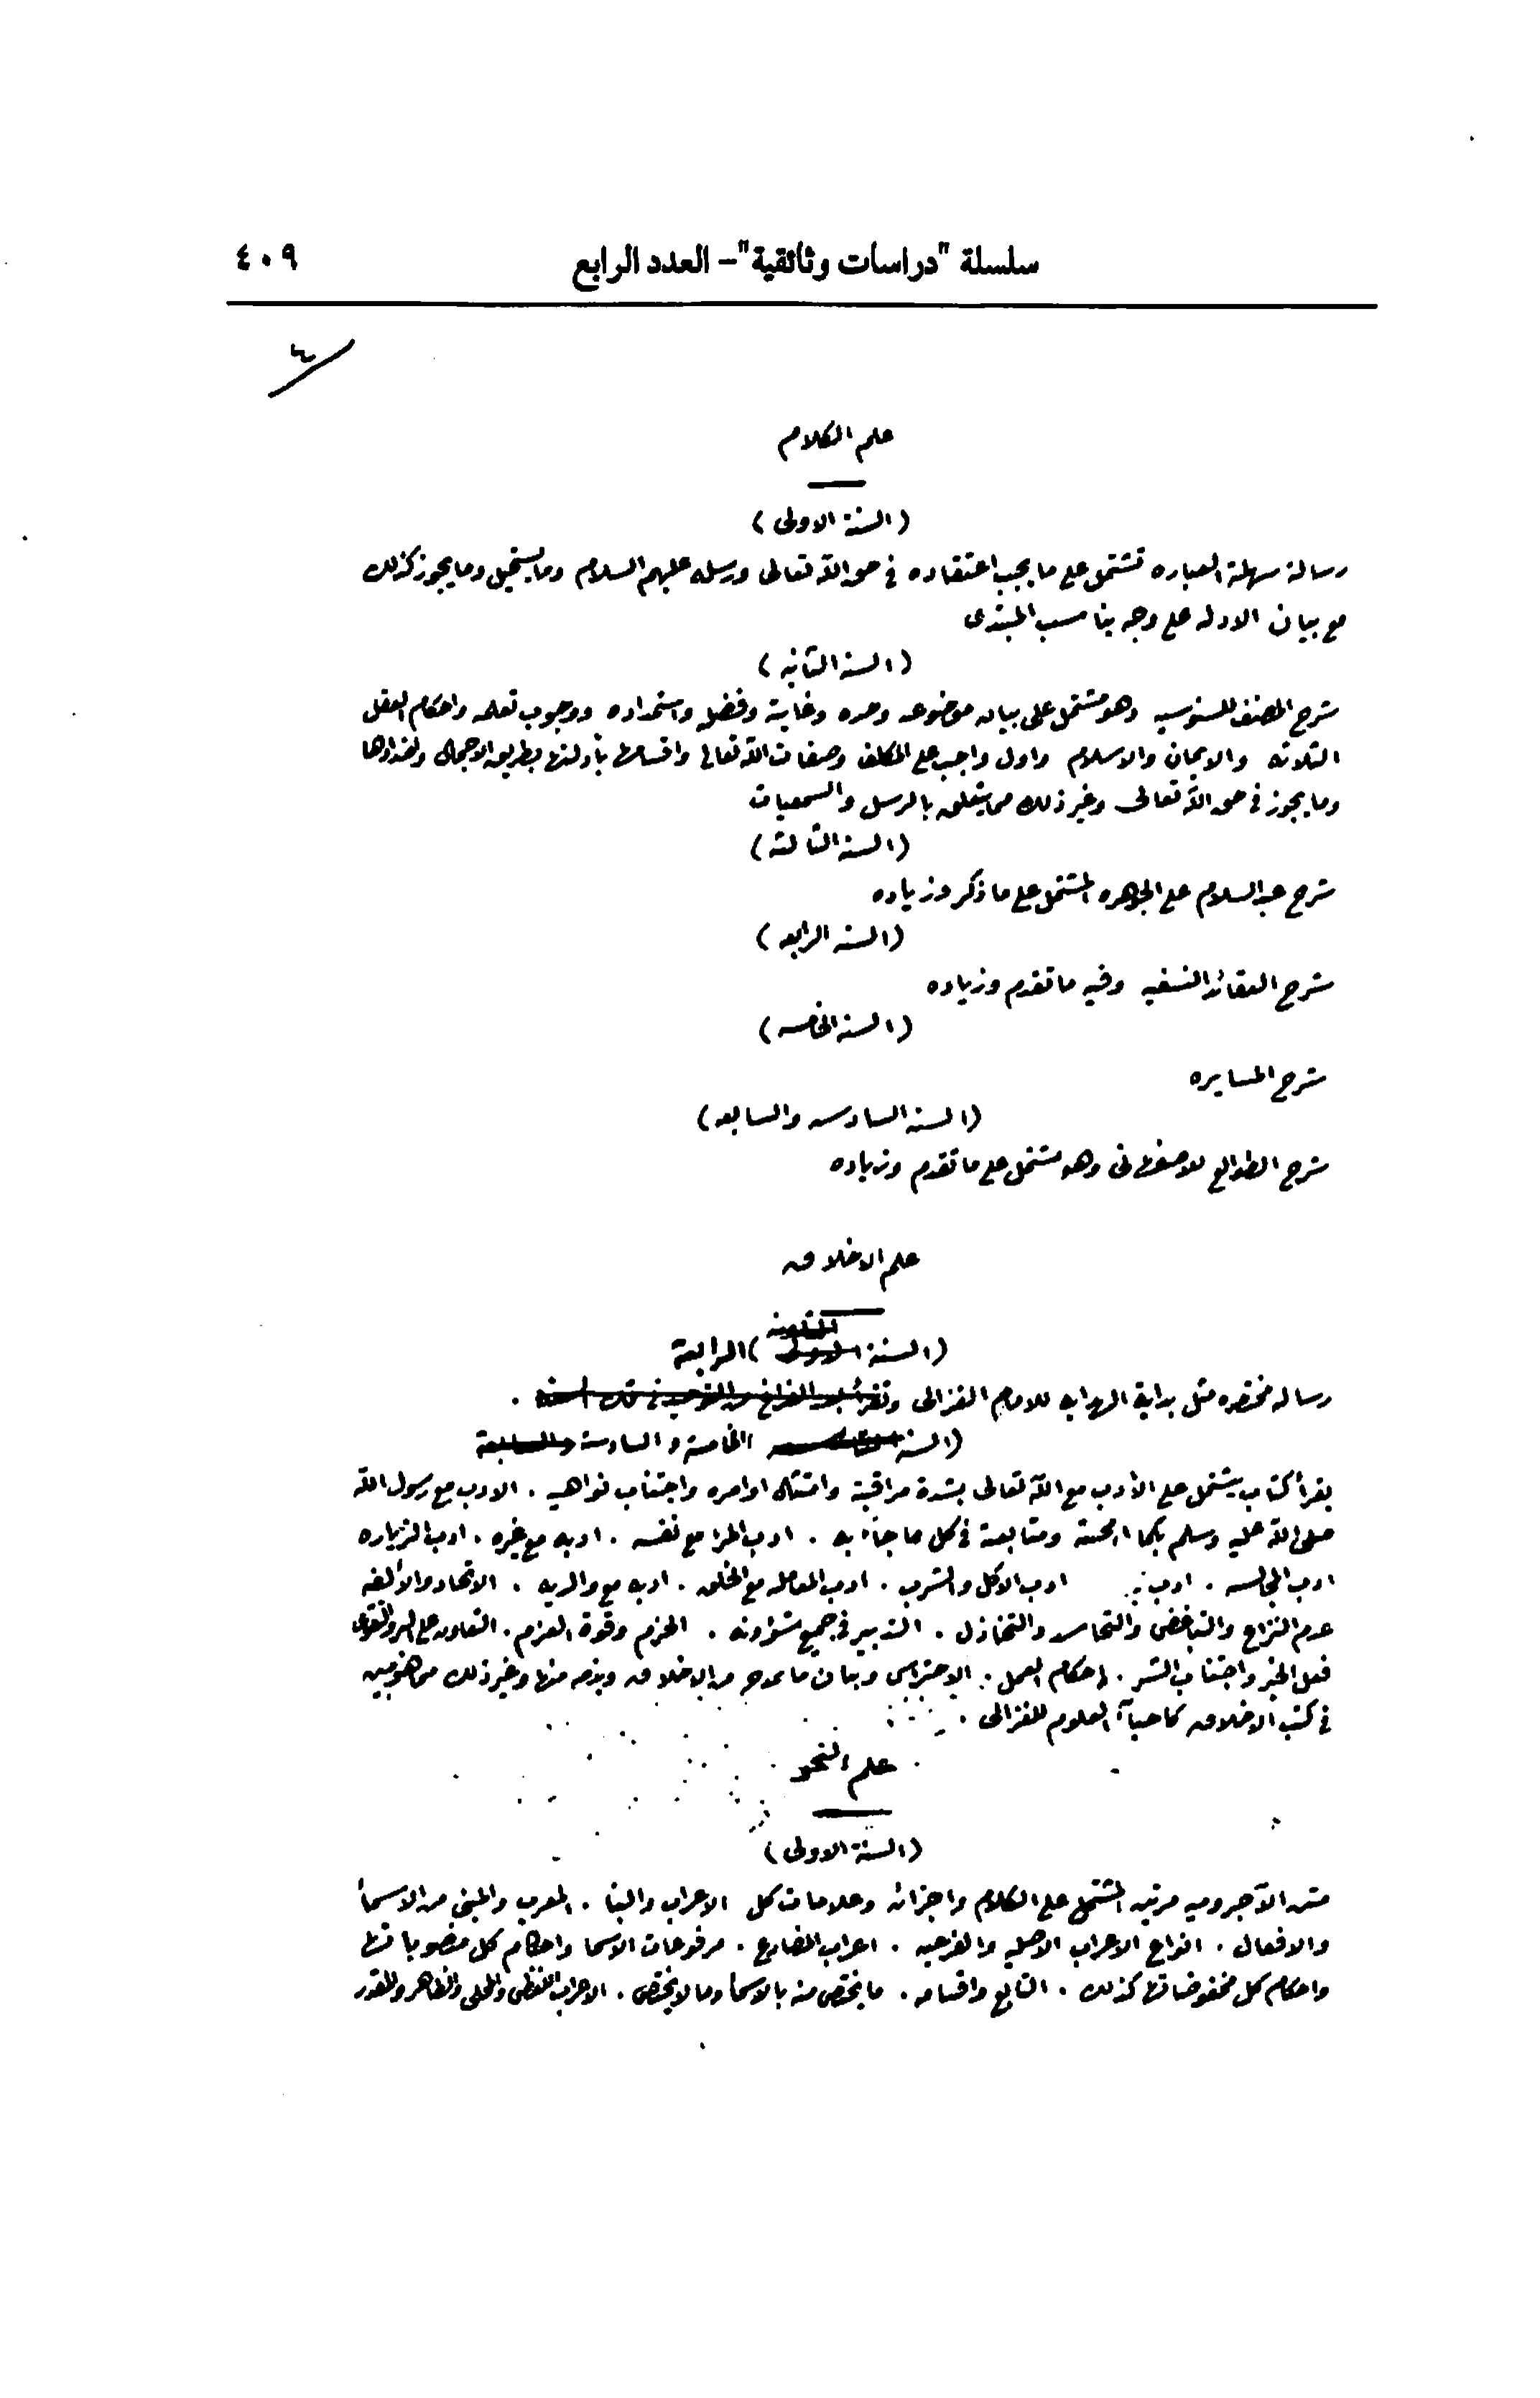 سلسلة "دراسات وثائقية" – العدد الرابع ٤٠٩
٤
علم الكلام
(السنة الاولى)
رسالة سهلة العباره تشتمل على ما يجب اعتقاده فى حق الله تعالى ورسله عليهم السلام وما يستحيل وما يجوز كذلك
مع بيان الادله على وجه يناسب المبتدى
(السنة الثانيه)
شرح المصنف للسنوسيه وهو مشتمل على بيان موضوعه وحده وغايته وفضله واستمداده ووجوب تعلمه واحكام العقل
الثلاثه والايمان والاسلام واول واجب على المكلف وصفات الله تعالى واقسامها بأدلتها بطريق الاجمال واضدادها
وما يجوز فى حق الله تعالى وغير ذلك مما يتعلق بالرسل والسمعيات
(السنة الثالثه)
شرح عبد السلام على الجوهره المشتمل على ما ذكر وزياده
(السنه الرابعه)
شرح العقائد النسفيه وفيه ما تقدم وزياده
(السنة الخامسه)
شرح المسايره
(السنة السادسه والسابعه)
شرح الطوالع للاصفهانى وهو مشتمل على ما تقدم وزياده
علم الاخلاق
(السنة الاولى) الرابعة
رساله مختصره مثل بداية الهدايه للامام الغزالى وتقرأ بعد الفراغ من التوحيد فى تلك السنه .
(السنة الخامسة والسادسة والسابعة
يقرأ كتاب يشتمل على الأدب مع الله تعالى بشدة مراقبته وامتثال اوامره واجتناب نواهيه . الادب مع رسول الله
صلى الله عليه وسلم بكمال محبته ومتابعته فى كل ما جاء به . ادب المرء مع نفسه . ادبه مع غيره . ادب الزياره
ادب المجالسه . ادب ادب الاكل والشرب . ادب المعامله مع الخلق . ادبه مع والديه . الاتحاد والألفه
عدم النزاع والتباغض والتحاسد والتخاذل . التدبير فى جميع شؤونه . الحزم وقوة العزم . التعاون على البر والتقوى
فعل الخير واجتناب الشر . احكام العمل . الاحتراس وبيان ما يمدح من الاخلاق ويذم منها وغير ذلك مما هو مبين
فى كتب الاخلاق كاحيآء العلوم للغزالى .
علم النحو
(السنة الاولى)
متن الآجروميه مرتين المشتمل على الكلام واجزائه وعلامات كل الاعراب والبنا . المعرب والمبنى من الاسمأ
والافعال . انواع الاعراب الاصليه والفرعيه . اعراب المضارع . مرفوعات الاسما واحكام كل منصوباتها
واحكام كل مخفوضاتها كذلك . التابع واقسامه . ما يختص منه بالاسما وما لا يختص . الاعراب اللفظى والمحلى والظاهر والمقدر